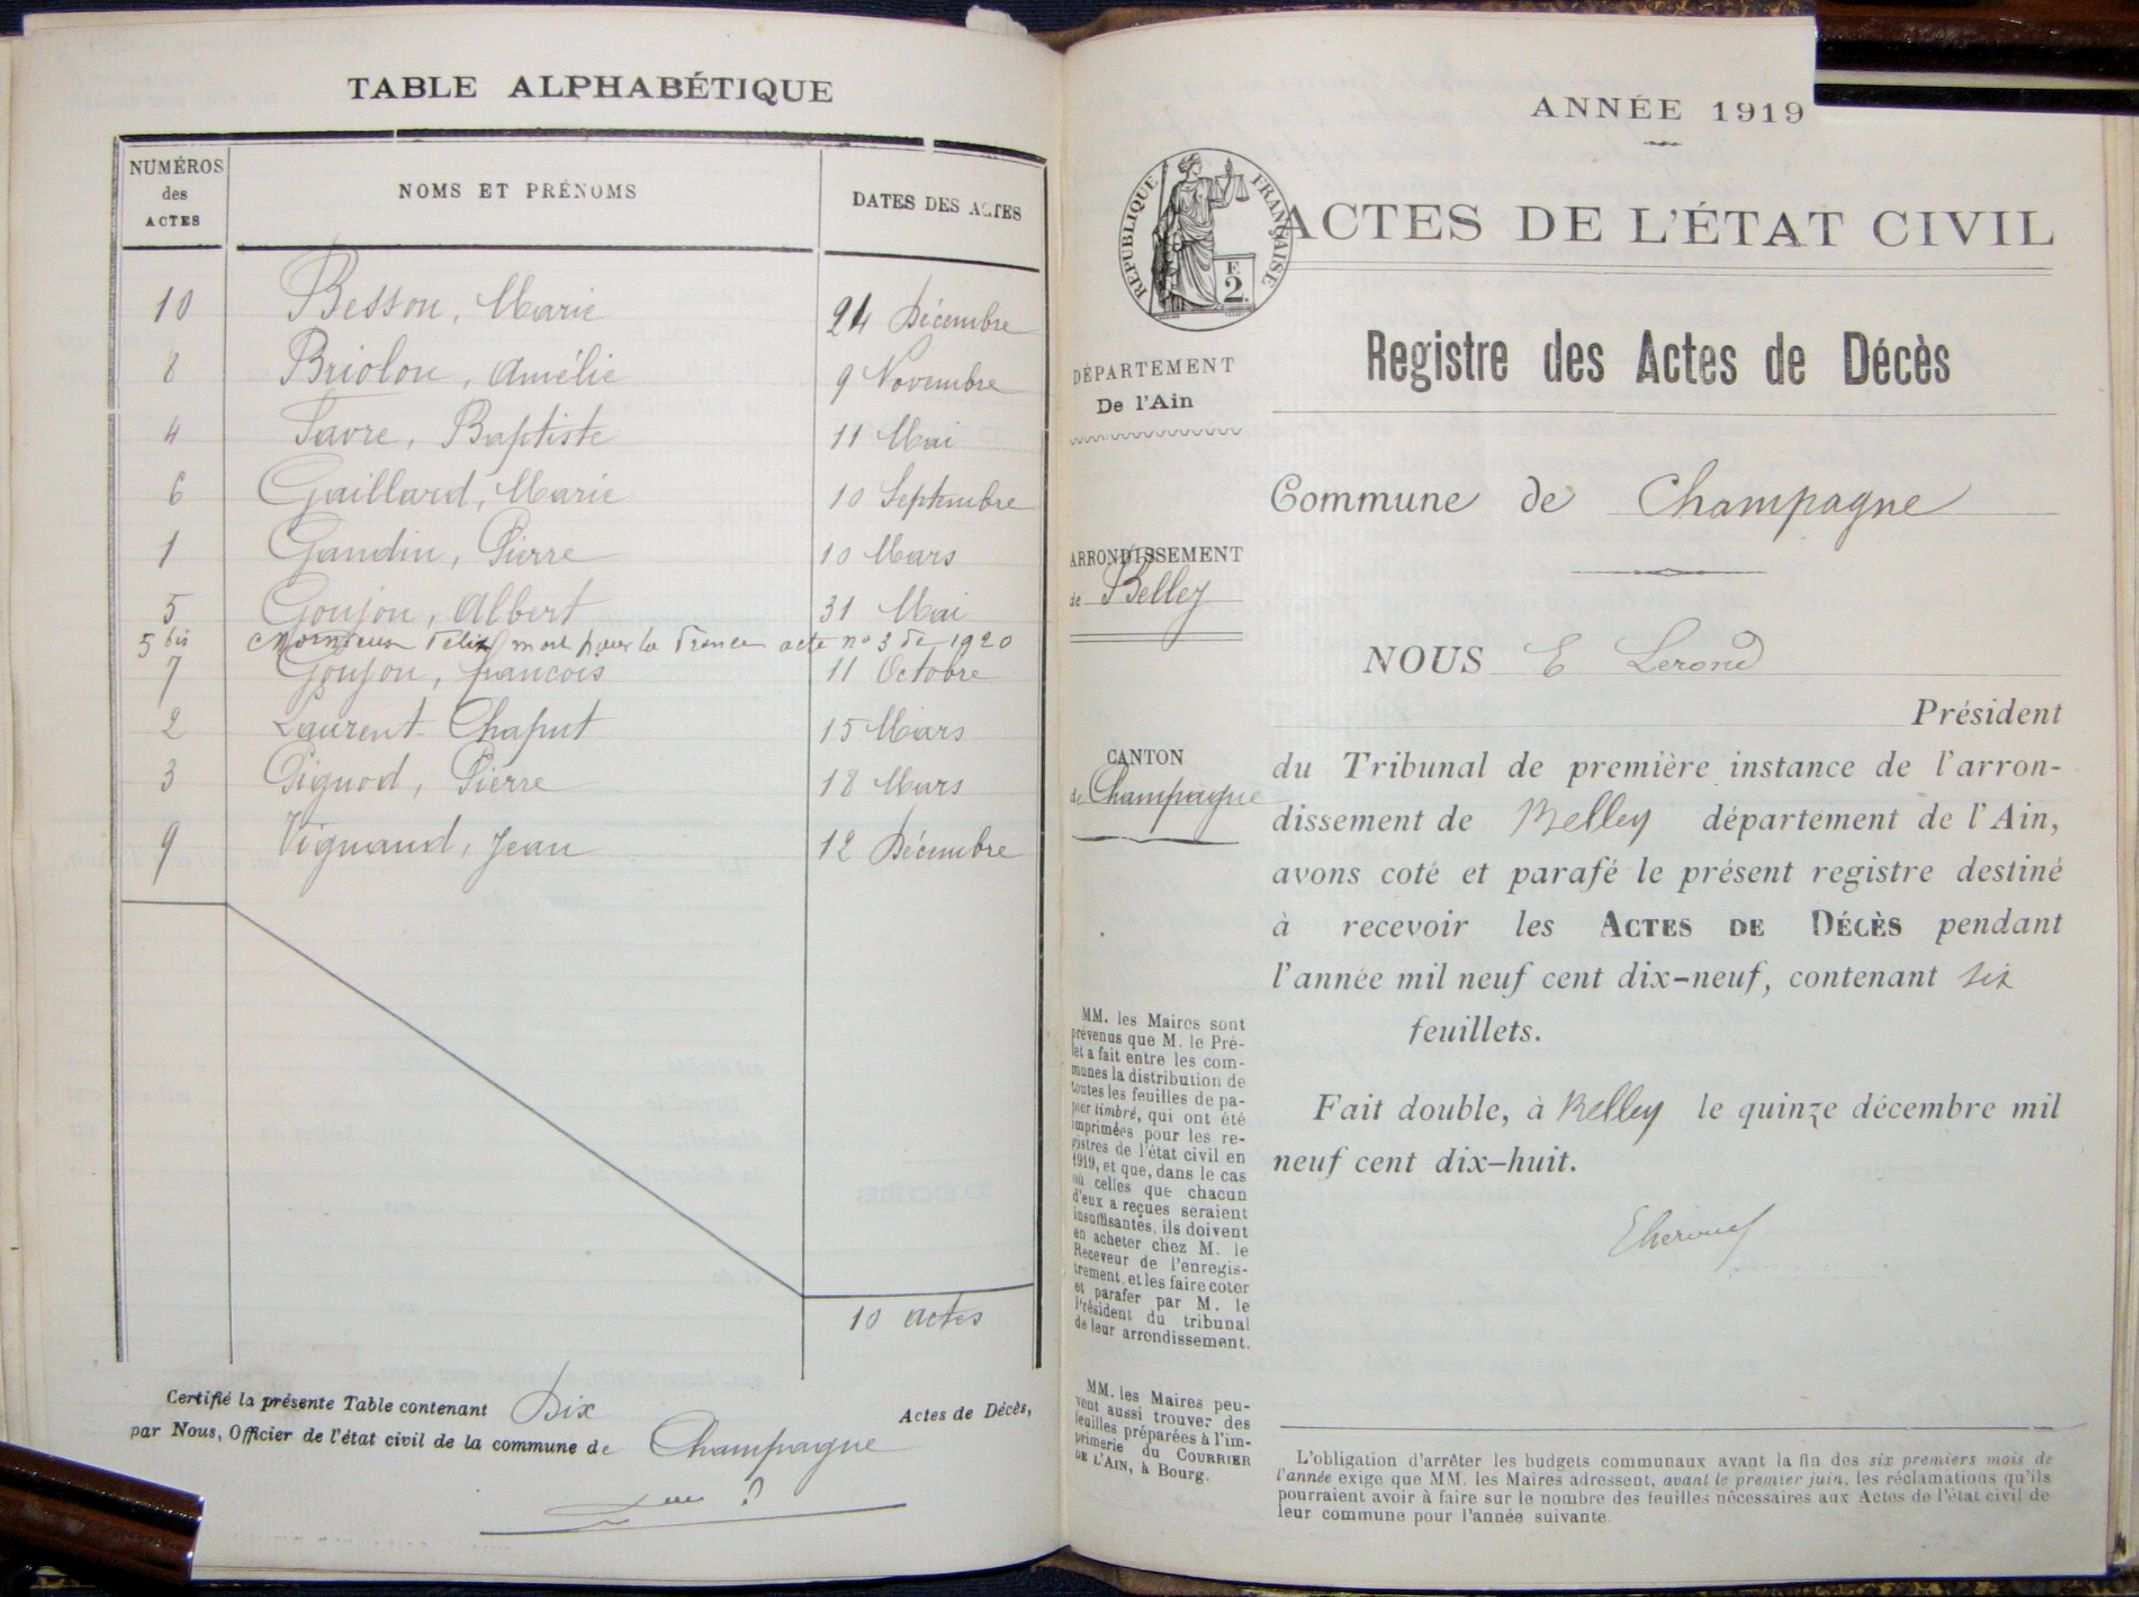 TABLE ALPHABÉTIQUE
NUMÉROS des ACTES NOMS ET PRÉNOMS DATES DES ACTES
10 Besson, Marie 24 Décembre
8 Briolon, Amélie 9 Novembre
4 Favre, Baptiste 11 Mai
6 Gaillard, Marie 10 Septembre
1 Gandin, Pierre 10 Mars
5 Goujon, Albert 31 Mai
5 bis Félix mort pour la France acte no 3 de 1920
7 Goujon, francois 11 Octobre
2 Laurent Chaput 15 Mars
3 Pignod, Pierre 18 Mars
9 Vignand, Jean 12 Décembre
10 actes
Certifié la présente Table contenant Dix Actes de Décès,
par Nous, Officier de l'état civil de la commune de Champagne
ANNÉE 1919
RÉPUBLIQUE FRANÇAISE
F.
2.
ACTES DE L'ÉTAT CIVIL
Registre des Actes de Décès
DÉPARTEMENT
De l'Ain
Commune de Champagne
ARRONDISSEMENT
de Belley
NOUS E Lerond
Président
CANTON
de Champagne
du Tribunal de première instance de l'arron-
dissement de Belley département de l'Ain,
avons coté et parafé le présent registre destiné
à recevoir les ACTES DE DÉCÈS pendant
l'année mil neuf cent dix-neuf, contenant six
feuillets.
Fait double, à Belley le quinze décembre mil
neuf cent dix-huit.
MM. les Maires sont
prévenus que M. le Pré-
fet a fait entre les com-
munes la distribution de
toutes les feuilles de pa-
pier timbré, qui ont été
imprimées pour les re-
gistres de l'état civil en
1919, et que, dans le cas
où celles que chacun
d'eux a reçues seraient
insuffisantes, ils doivent
en acheter chez M. le
Receveur de l'enregis-
trement, et les faire coter
et parafer par M. le
Président du tribunal
de leur arrondissement.
MM. les Maires peu-
vent aussi trouver des
feuilles préparées à l'im-
primerie du COURRIER
DE L'AIN, à Bourg.
L'obligation d'arrêter les budgets communaux avant la fin des six premiers mois de
l'année exige que MM. les Maires adressent, avant le premier juin, les réclamations qu'ils
pourraient avoir à faire sur le nombre des feuilles nécessaires aux Actes de l'état civil de
leur commune pour l'année suivante.